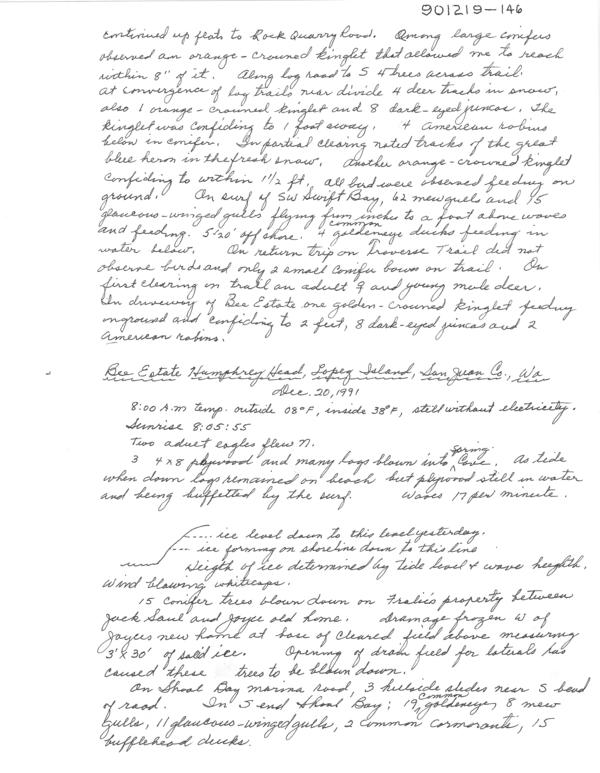 901219-146
continued up flats to Rock Quarry Road. Among large conifers
observed an orange-crowned kinglet that allowed me to reach
within 8" of it. Along log road to S 4 trees across trail.
at convergence of log trails near divide 4 deer tracks in snow,
also 1 orange-crowned kinglet and 8 dark-eyed juncos. The
kinglet was confiding to 1 foot away. 4 American robins
below in conifer. In partial clearing noted tracks of the great
blue heron in the fresh snow. Another orange-crowned kinglet
confiding to within 1 1/2 ft, all bird were observed feeding on
ground. On surf of SW Swift Bay, 62 mew gulls and 15
glaucous-winged gulls flying from inches to a foot above waves
and feeding. 5-20' off shore. 4 common goldeneye ducks feeding in
water below. On return trip on Traverse Trail did not
observe birds and only 2 small conifer bows on trail. On
first clearing on trail an adult ♀ and young mule deer.
In driveway of Bee Estate one golden-crowned kinglet feeding
on ground and confiding to 2 feet, 8 dark-eyed juncos and 2
American robins.
Bee Estate Humphrey Head, Lopez Island, San Juan Co., Wa
Dec. 20, 1991
8:00 A.m temp. outside 08°F, inside 38°F, still without electricity.
Sunrise 8:05:55
Two adult eagles flew N.
3 4x8 plywood and many logs blown into Spring Cove. As tide
when down logs remained on beach but plywood still in water
and being buffetted by the surf. Waves 17 per minute.
ice level down to this level yesterday.
ice forming on shoreline down to this line
Heigth of ice determined by tide level & wave heighth.
Wind blowing whitecaps.
15 conifer trees blown down on Fralic's property between
Jack Saul and Joyce old home. Dramage frozen W of
Joyces new home at base of cleared field above measuring
3'x30' of solid ice. Opening of drain field for laterals has
caused these trees to be blown down.
On Shoal Bay marina road, 3 hillside slides near S bend
of road. In S end Shoal Bay; 19 Common goldeneye, 8 mew
gulls, 11 glaucous-winged gulls, 2 common cormorants, 15
bufflehead ducks.